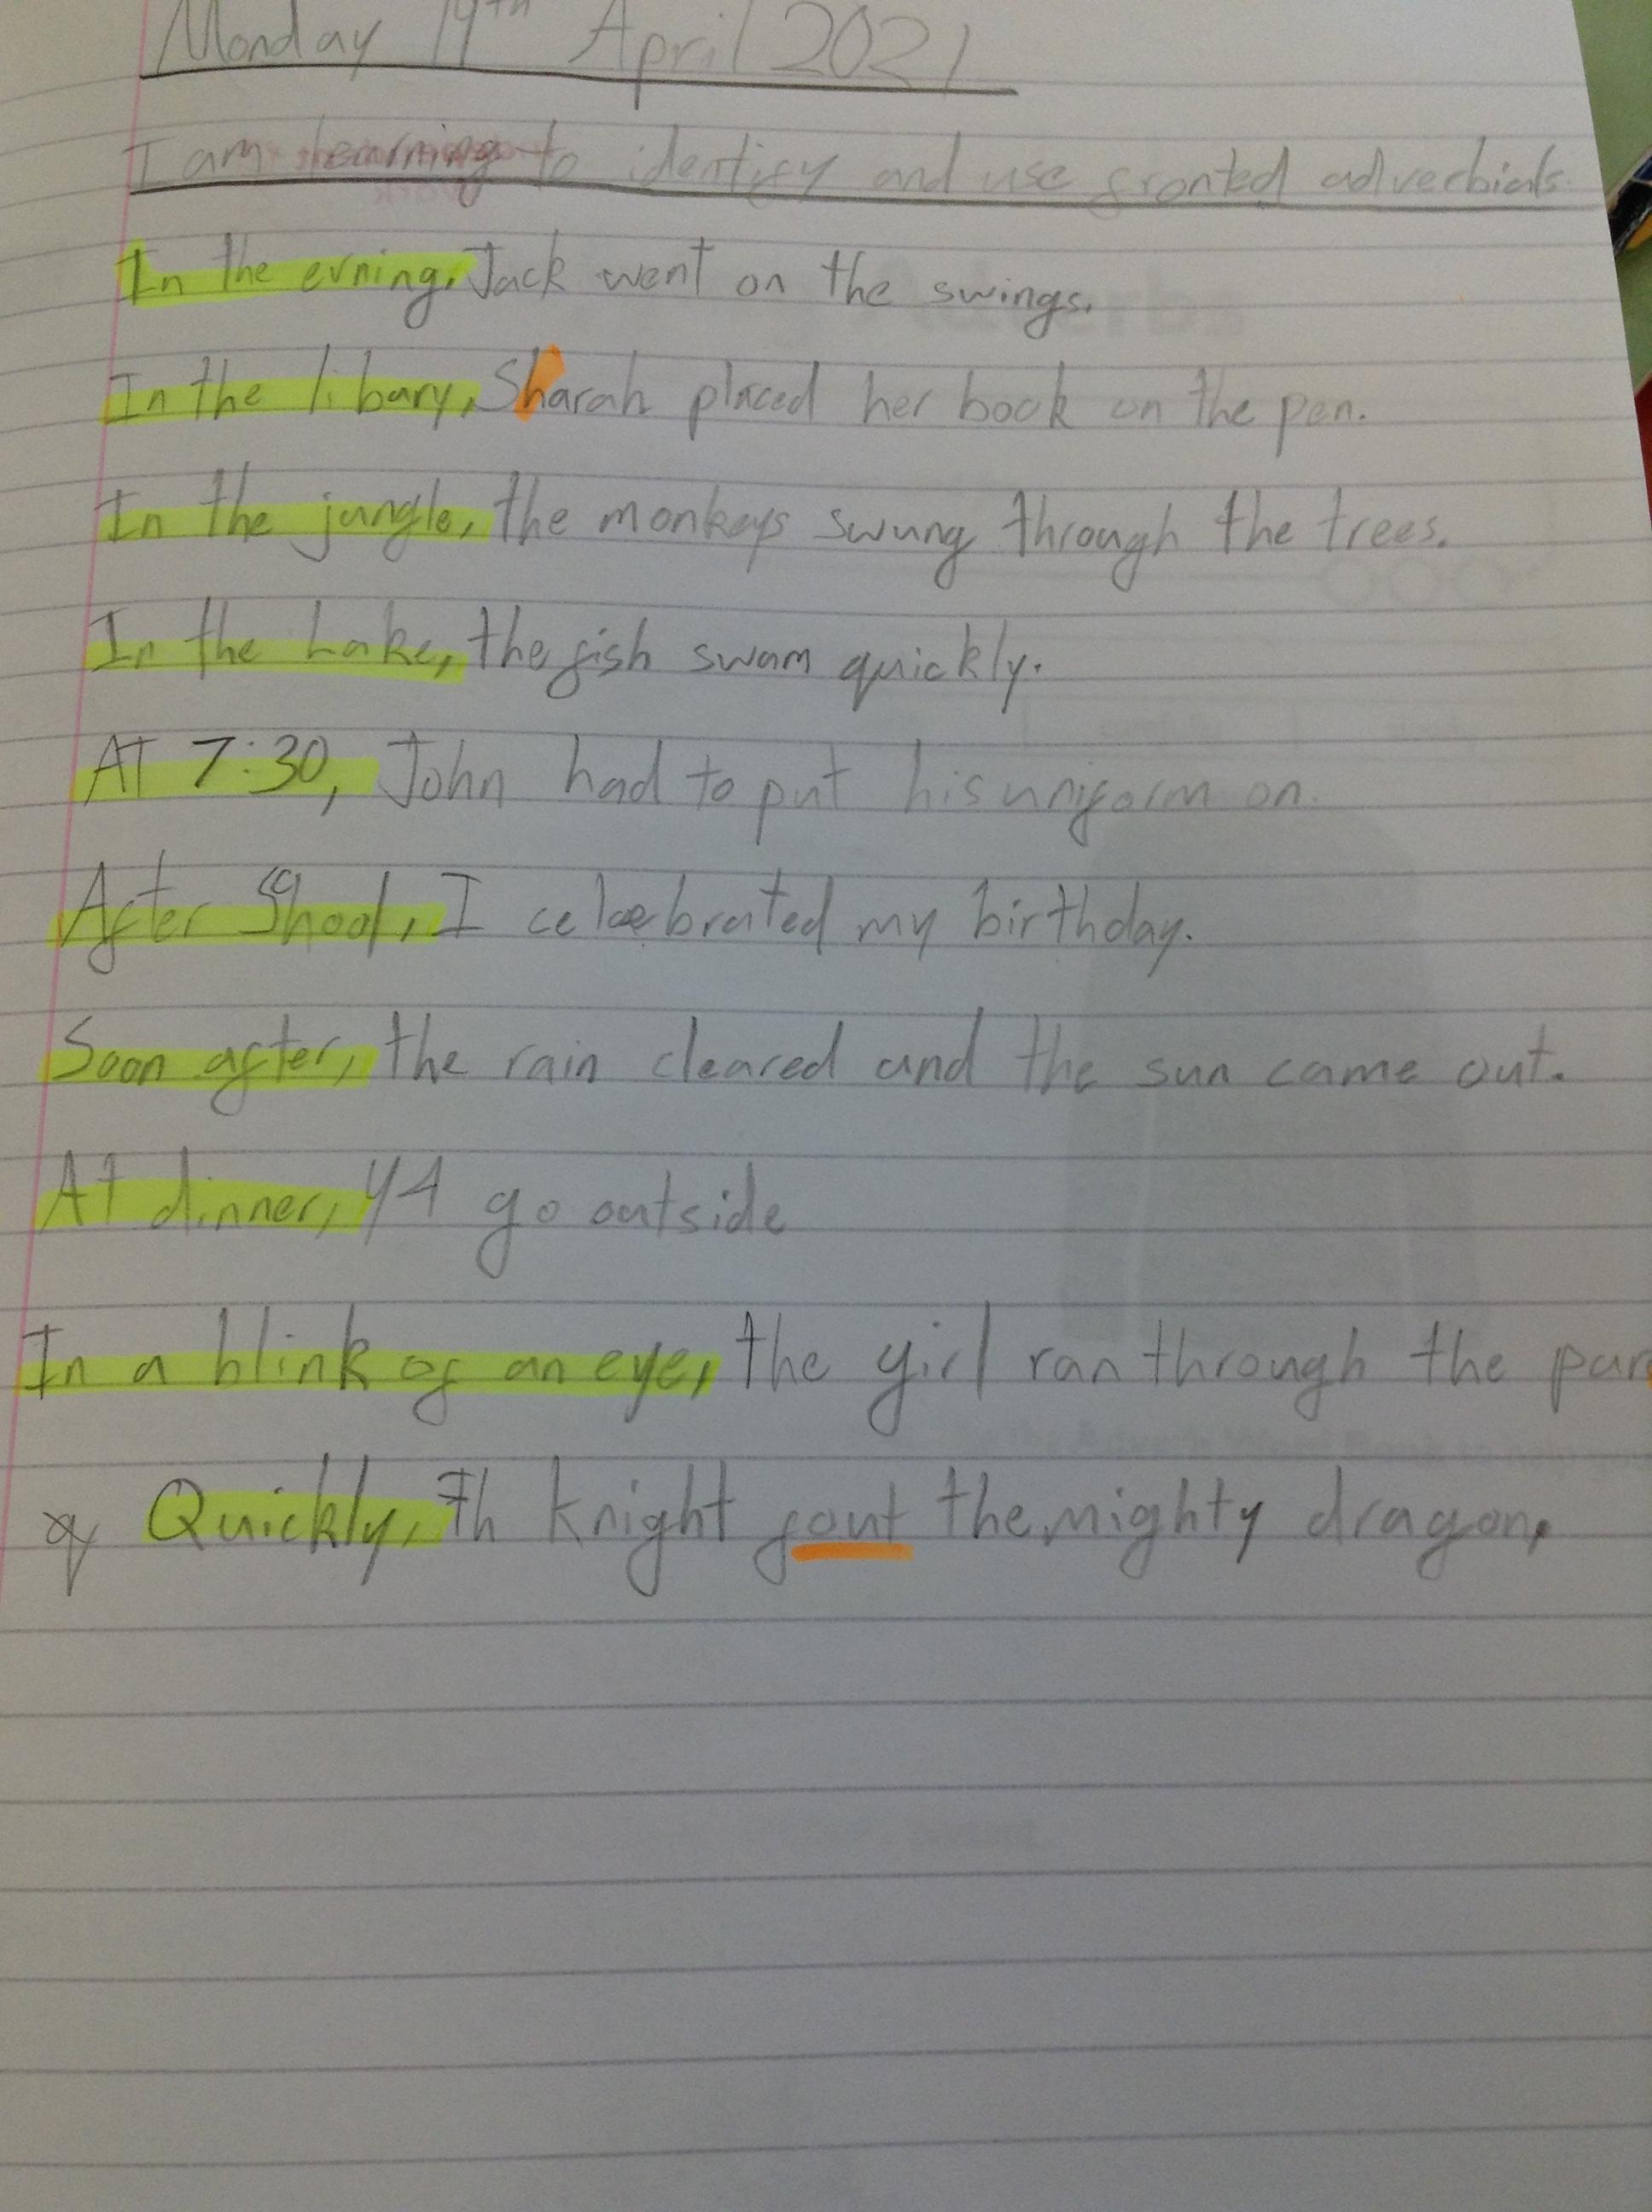 Monday 19th April 2021
I am learning to identify and use fronted adverbials
In the evning, Jack went on the swings.
In the libary, Sharah placed her book on the pen.
In the jungle, the monkeys swung through the trees.
In the Lake, the fish swam quickly.
At 7:30, John had to put his uniform on.
After Shool, I celebrated my birthday.
Soon after, the rain cleared and the sun came out.
At dinner, Y4 go outside
In a blink of an eye, the girl ran through the par
Quickly, Th knight fout the mighty dragon.